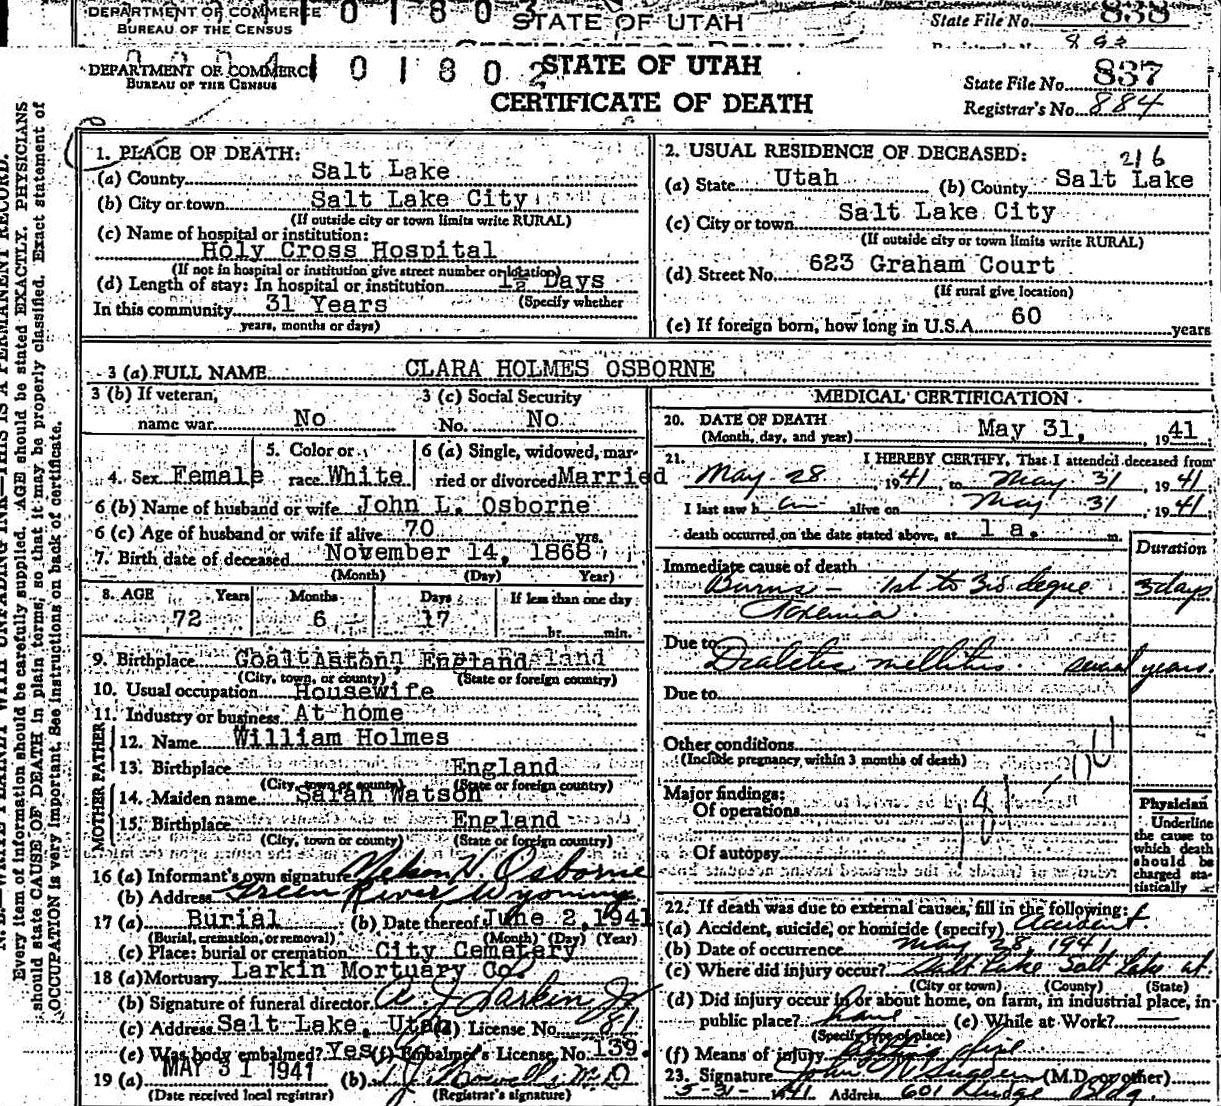 DEPARTMENT OF COMMERCE
BUREAU OF THE CENSUS
0 1 8 0 3
STATE OF UTAH
State File No. 838
CERTIFICATE OF DEATH
DEPARTMENT OF COMMERCE
BUREAU OF THE CENSUS
0 1 8 0 2
STATE OF UTAH
CERTIFICATE OF DEATH
State File No. 837
Registrar's No. 884
N. B.—WRITE PLAINLY WITH UNFADING INK—THIS IS A PERMANENT RECORD.
Every item of information should be carefully supplied. AGE should be stated EXACTLY. PHYSICIANS
should state CAUSE OF DEATH in plain terms, so that it may be properly classified. Exact statement of
OCCUPATION is very important. See instructions on back of certificate.
1. PLACE OF DEATH:
(a) County Salt Lake
(b) City or town Salt Lake City
(If outside city or town limits write RURAL)
(c) Name of hospital or institution:
Holy Cross Hospital
(If not in hospital or institution give street number or location)
(d) Length of stay: In hospital or institution 1½ Days
(Specify whether
In this community 31 Years
years, months or days)
2. USUAL RESIDENCE OF DECEASED:
216
(a) State Utah (b) County Salt Lake
(c) City or town Salt Lake City
(If outside city or town limits write RURAL)
(d) Street No. 623 Graham Court
(If rural give location)
(e) If foreign born, how long in U.S.A. 60 years
3 (a) FULL NAME CLARA HOLMES OSBORNE
3 (b) If veteran, name war No
3 (c) Social Security No. No
4. Sex Female
5. Color or race White
6 (a) Single, widowed, married or divorced Married
6 (b) Name of husband or wife John L. Osborne
6 (c) Age of husband or wife if alive 70 yrs.
7. Birth date of deceased November 14, 1868
(Month) (Day) Year)
8. AGE Years Months Days If less than one day
72 6 17 hr. min.
9. Birthplace England
(City, town, or county) (State or foreign country)
10. Usual occupation Housewife
11. Industry or business At home
FATHER
12. Name William Holmes
13. Birthplace England
(City, town or county) (State or foreign country)
MOTHER
14. Maiden name Sarah Watson
15. Birthplace England
(City, town or county) (State or foreign country)
16 (a) Informant's own signature Nelson H. Osborne
(b) Address Green River Wyoming
17 (a) Burial (b) Date thereof June 2, 1941
(Burial, cremation, or removal) (Month) (Day) (Year)
(c) Place: burial or cremation City Cemetery
18 (a) Mortuary Larkin Mortuary Co.
(b) Signature of funeral director A. J. Larkin Jr
(c) Address Salt Lake, Utah (d) License No. 81
(e) Was body embalmed? Yes (f) Embalmer's License No. 139.
19 (a) MAY 31 1941 (b) M D
(Date received local registrar) (Registrar's signature)
MEDICAL CERTIFICATION
20. DATE OF DEATH
(Month, day, and year) May 31, 1941
21. I HEREBY CERTIFY, That I attended deceased from
May 28, 1941, to May 31, 1941.
I last saw h er alive on May 31, 1941.
death occurred on the date stated above, at 1 a. m.
Duration
Immediate cause of death
Burns - 1st to 3rd degree 3 days
Toxemia
Due to Diabetes mellitus several years.
Due to
Other conditions
(Include pregnancy within 3 months of death)
Major findings:
Of operations
Of autopsy
Physician
Underline
the cause to
which death
should be
charged sta-
tistically
22. If death was due to external causes, fill in the following:
(a) Accident, suicide, or homicide (specify) Accident.
(b) Date of occurrence May 28, 1941
(c) Where did injury occur? Salt Lake Salt Lake
(City or town) (County) (State)
(d) Did injury occur in or about home, on farm, in industrial place, in
public place? home (e) While at Work? —
(Specify type of place)
(f) Means of injury fire
23. Signature John (M.D. or other)
5-31-1941 Address 601 Judge Bldg.